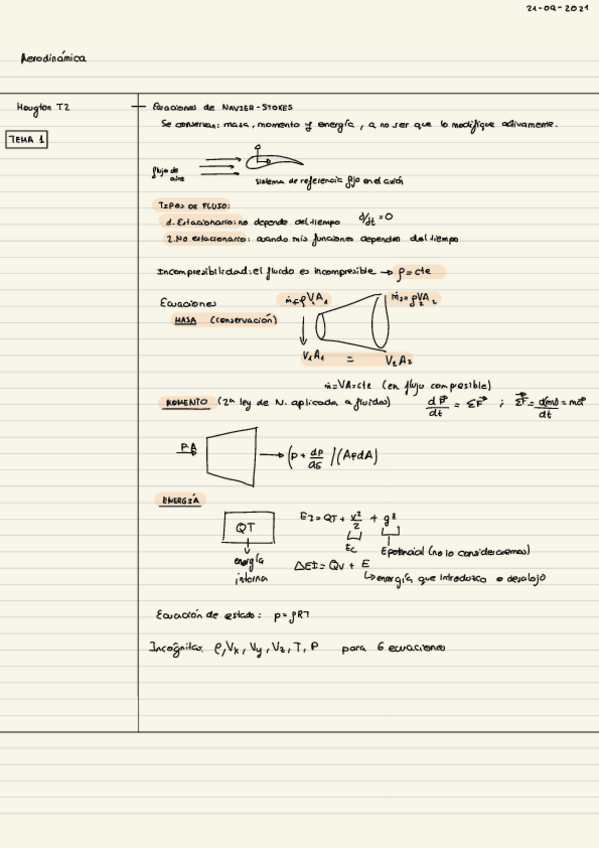 21-09-2021
Aerodinámica
Hougton T2
TEMA 1
Ecuaciones de NAVIER-STOKES
Se conservan: masa, momento y energía, a no ser que lo modifique activamente.
flujo de aire
sistema de referencia fijo en el avión
TIPOS DE FLUJO:
1. Estacionario: no depende del tiempo d/dt = 0
2. No estacionario: cuando mis funciones dependen del tiempo
Incompresibilidad: el fluido es incompresible → ρ = cte
Ecuaciones
MASA (conservación)
ṁ₁=ρV₁A₁ ṁ₂=ρV₂A₂
V₁A₁ = V₂A₂
ṁ=VA=cte (en flujo compresible)
MOMENTO (2ª ley de N. aplicada a fluidos) dP/dt = ΣF ; ΣF = d(mv)/dt = ma
PA (p + dp/ds)(A+dA)
ENERGÍA
QT
energía interna
EI = QT + v²/2 + gz
Ec Epotencial (no lo consideraremos)
ΔEI = Qv + E
↳ energía que introduzco o desalojo
Ecuación de estado: p = ρRT
Incógnitas: ρ, Vx, Vy, Vz, T, P para 6 ecuaciones